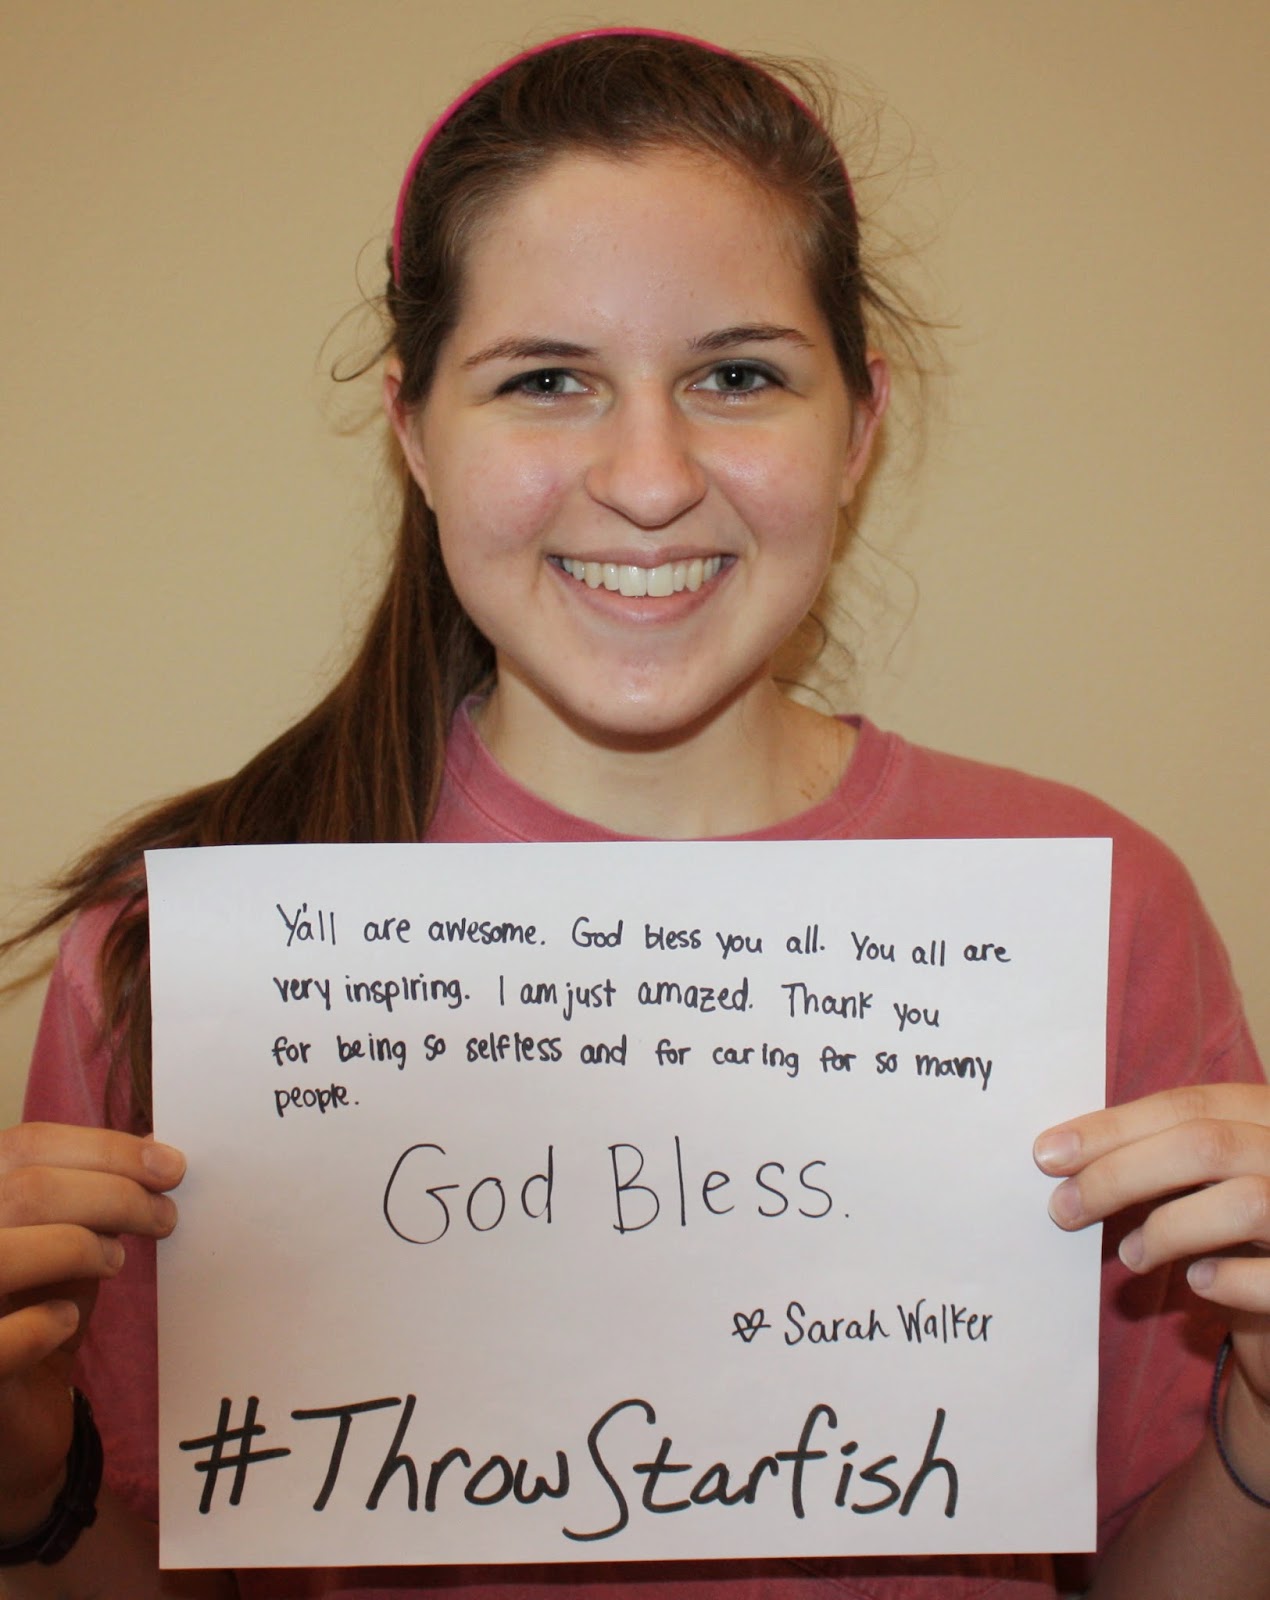 Y'all are awesome. God bless you all. You all are
very inspiring. I am just amazed. Thank you
for being so selfless and for caring for so many
people.
God Bless.
Sarah Walker
#ThrowStarfish